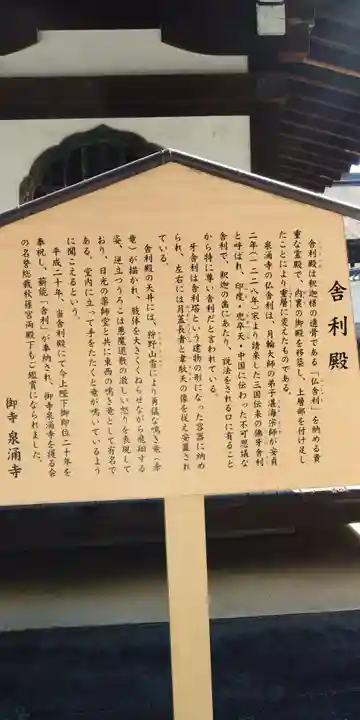 舎利殿
舎利殿は釈迦様の遺骨である「仏舎利」を納める貴
重な霊殿で、内裏の御殿を移築し、上層部を付け足し
たことにより重層に変えたものである。
泉涌寺の仏舎利は、月輪大師の弟子湛海宗師が安貞
二年(一二二八年)宋より請来した三国伝来の佛牙舎利
と呼ばれ、印度・兜卒天・中国に伝わった不可思議な
舎利で、釈迦の歯にあたり、説法をされる口に有ること
から特に尊い舎利だと言われている。
牙舎利は舎利塔という建物の形になった容器に納め
られ、左右には月蓋長者と韋駄天の像を従え安置され
ている。
舎利殿の天井には、狩野山雪により勇儀な鳴き竜(赤
竜)が描かれ、肢体を大きくくねらせながら飛翔する
姿、逆立つうろこは悪魔退散の激しい怒りを表現して
おり、日光の薬師堂と共に東西の鳴き竜として有名で
ある。堂内に立って手をたたくと竜が鳴いているよう
に聞こえるという。
平成二十年、当舎利殿にて今上陛下御即位二十年を
奉祝し、薪能「舎利」が奉納され、御寺泉涌寺を護る会
の名誉総裁秋篠宮両殿下もご鑑賞になられました。
御寺 泉涌寺